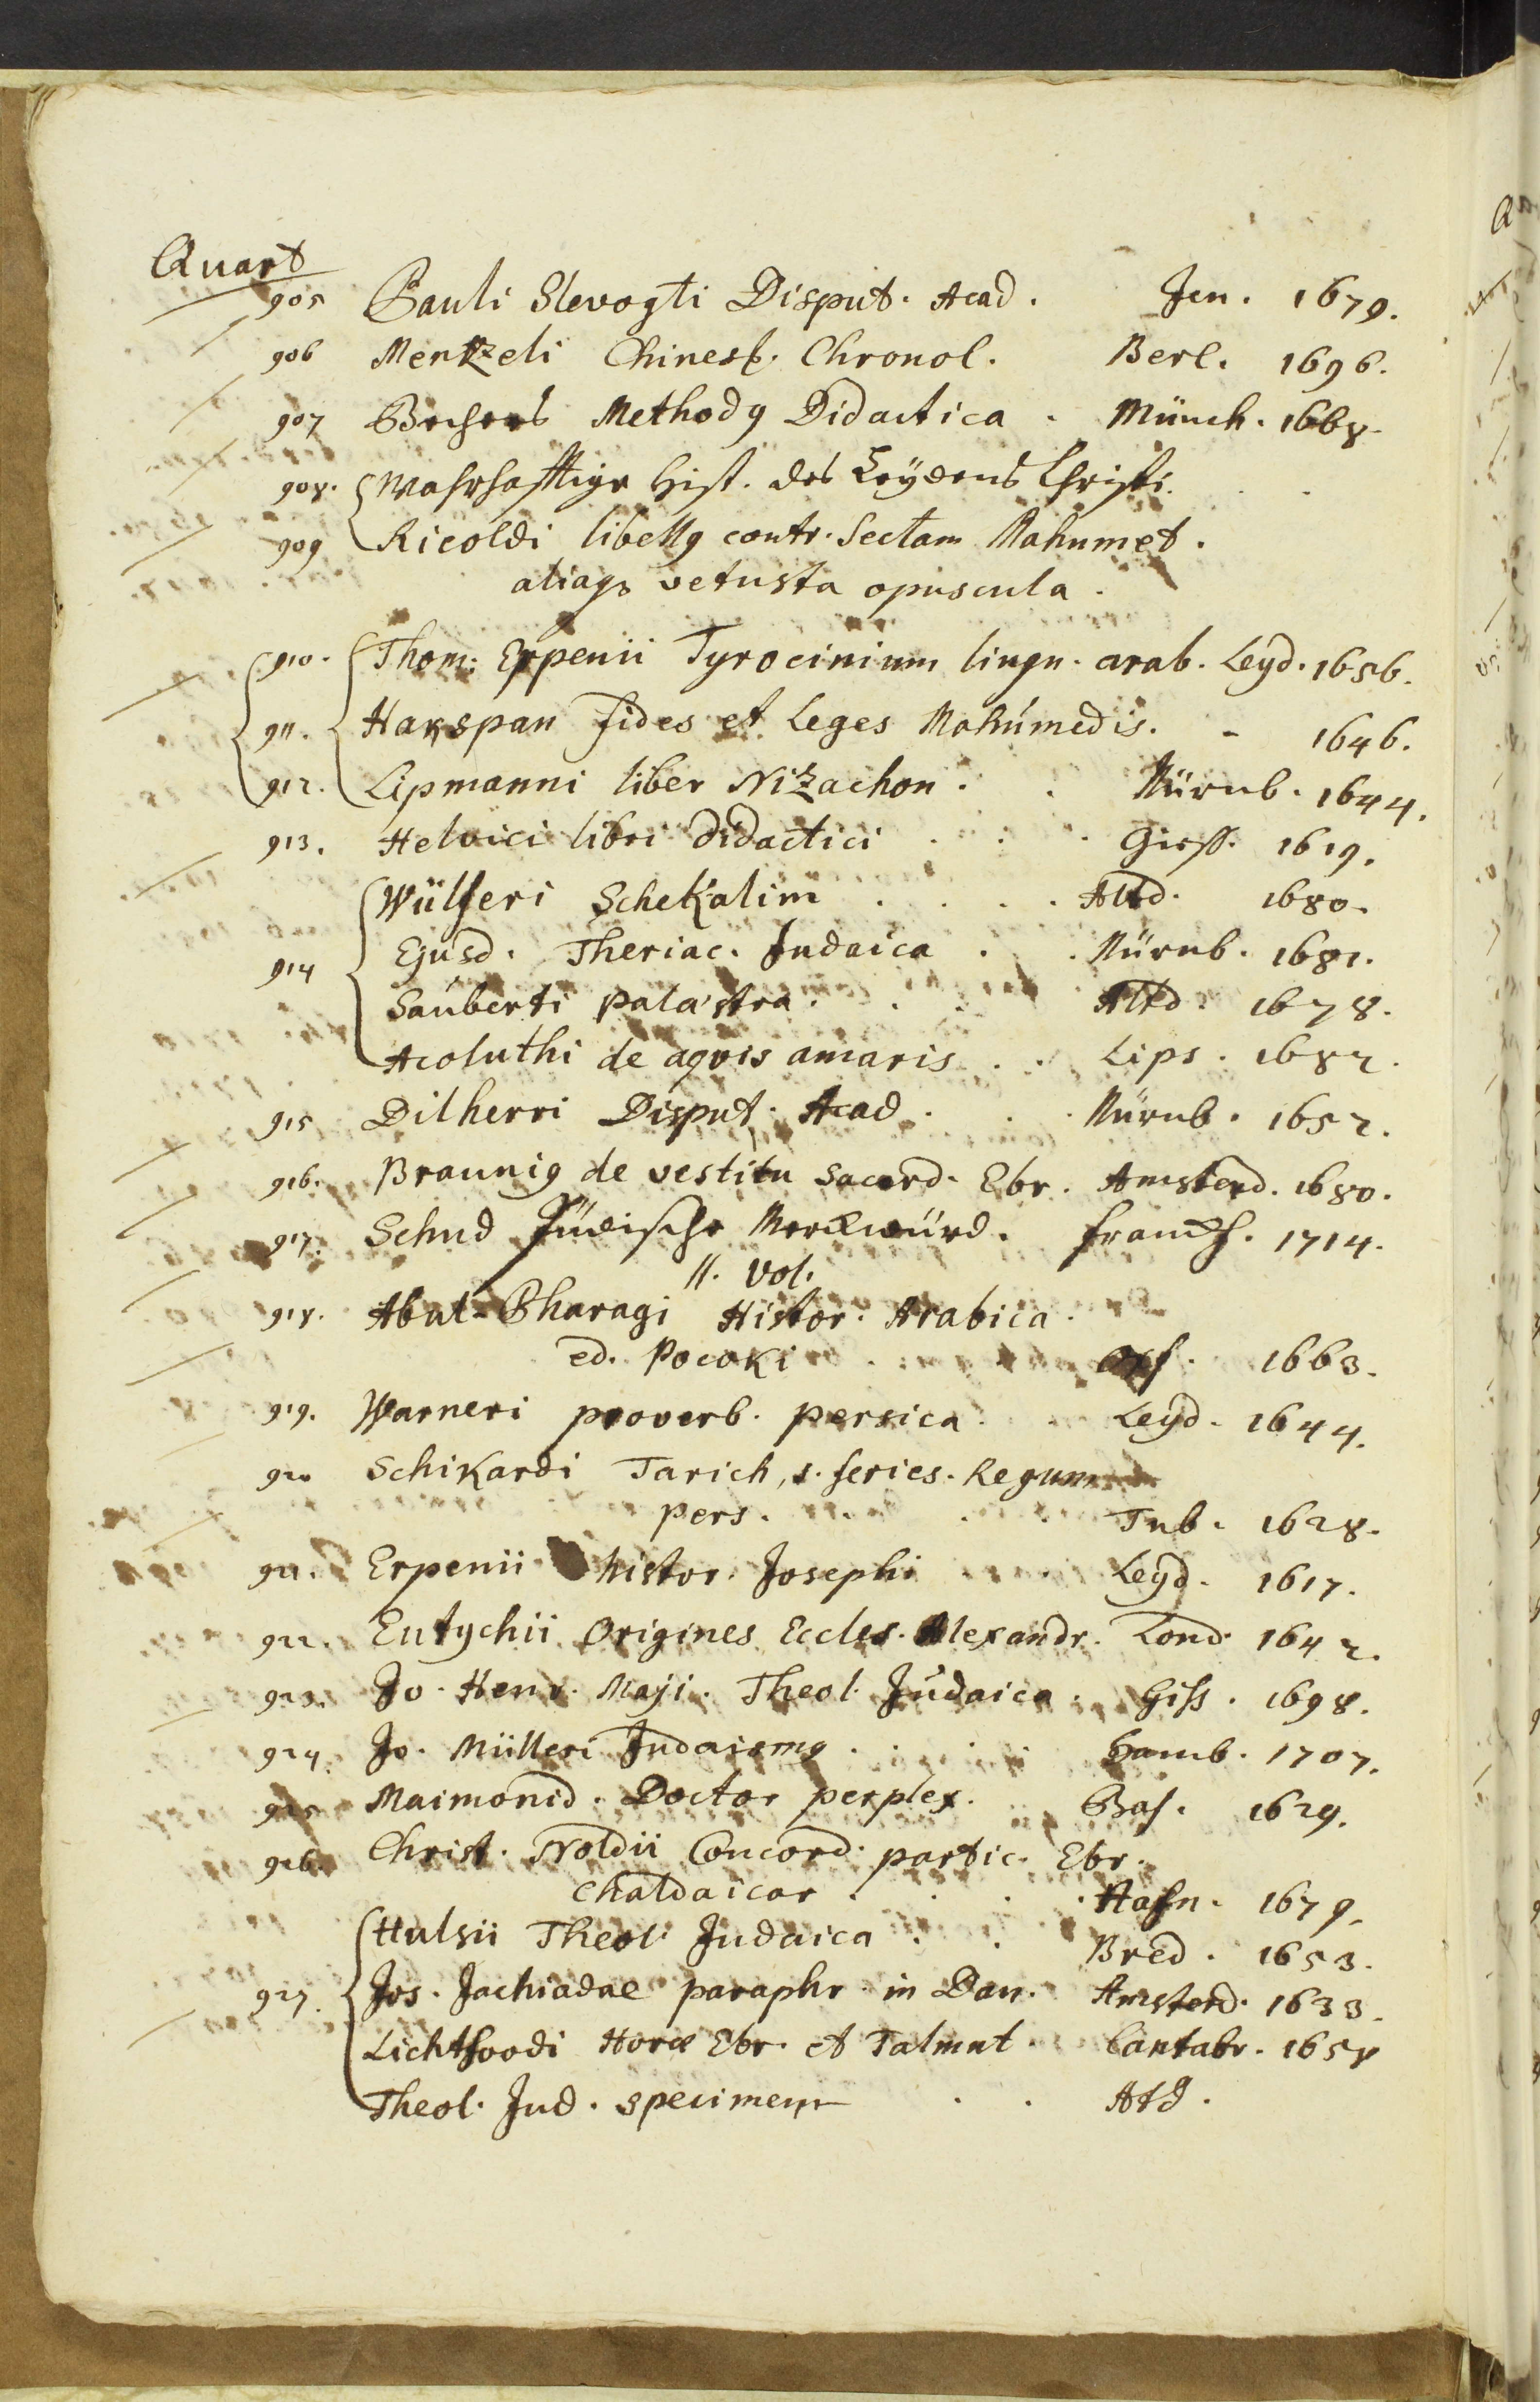 Quart
905 Pauli Slevogti Disput. Acad. Jen. 1679.
906 Mentzeli Chines. Chronol. Berl. 1696.
907 Bechers Methodg Didactica. Münch. 1668.
908. Wahrhafftige Hist. des Leydens Christi.
909 Ricoldi libellg contr. Sectam Mahumet.
aliaqs vetusta opuscula.
910. Thom: Erpenii Tyrocinium lingu. arab. Leyd. 1656.
911. Hakspan fides et Leges Mohúmedis. - 1646.
912. Lipmanni liber Nizachon. Nürnb. 1644.
913. Helvici libri didactici Giess. 1619.
Wülferi Schekalim Altd. 1680.
914 Ejusd. Theriac. Judaica Nürnb. 1681.
Sauberti palaestra. Altd. 1678.
Acoluthi de aqvis amaris Lips. 1682.
915 Dilherri Disput. Acad. Nürnb. 1652.
916. Braunig de vestitu Sacerd. Ebr. Amsterd. 1680.
917. Schud Jüdische Merckwürd. Franckf. 1714.
II. Vol.
918. Abul-Pharagi Histor. Arabica.
ed. Pocoki Oxf. 1663.
919. Warneri proverb. persica. Leyd. 1644.
920 Schikardi Tarich, s. series. Regum
pers. Tub. 1628.
921. Erpenii histor. Josephi Leyd. 1617.
922. Eutychii Origines Eccles. Alexandr. Lond. 1642.
923. Jo. Henr. Maji. Theol. Judaica. Giss. 1698.
924. Jo. Mülleri Judaismg Hamb. 1707.
925 Maimonid. Doctor perplex. Bas. 1629.
926. Christ. Noldii Concord. partic. Ebr.
Chaldaicar. Hafn. 1679.
Hulsii Theol. Judaica Bred. 1653.
927. Jos. Jachiadae paraphr. in Dan. Amsterd. 1633.
Lichtfoodi Horæ Ebr. et Talmut. Cantabr. 1658
Theol. Jud. specimen